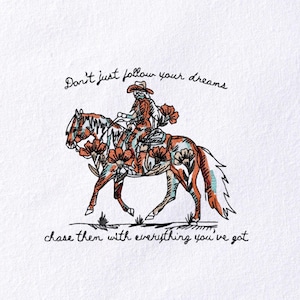 Don't just follow your dreams
chase them with everything you've got